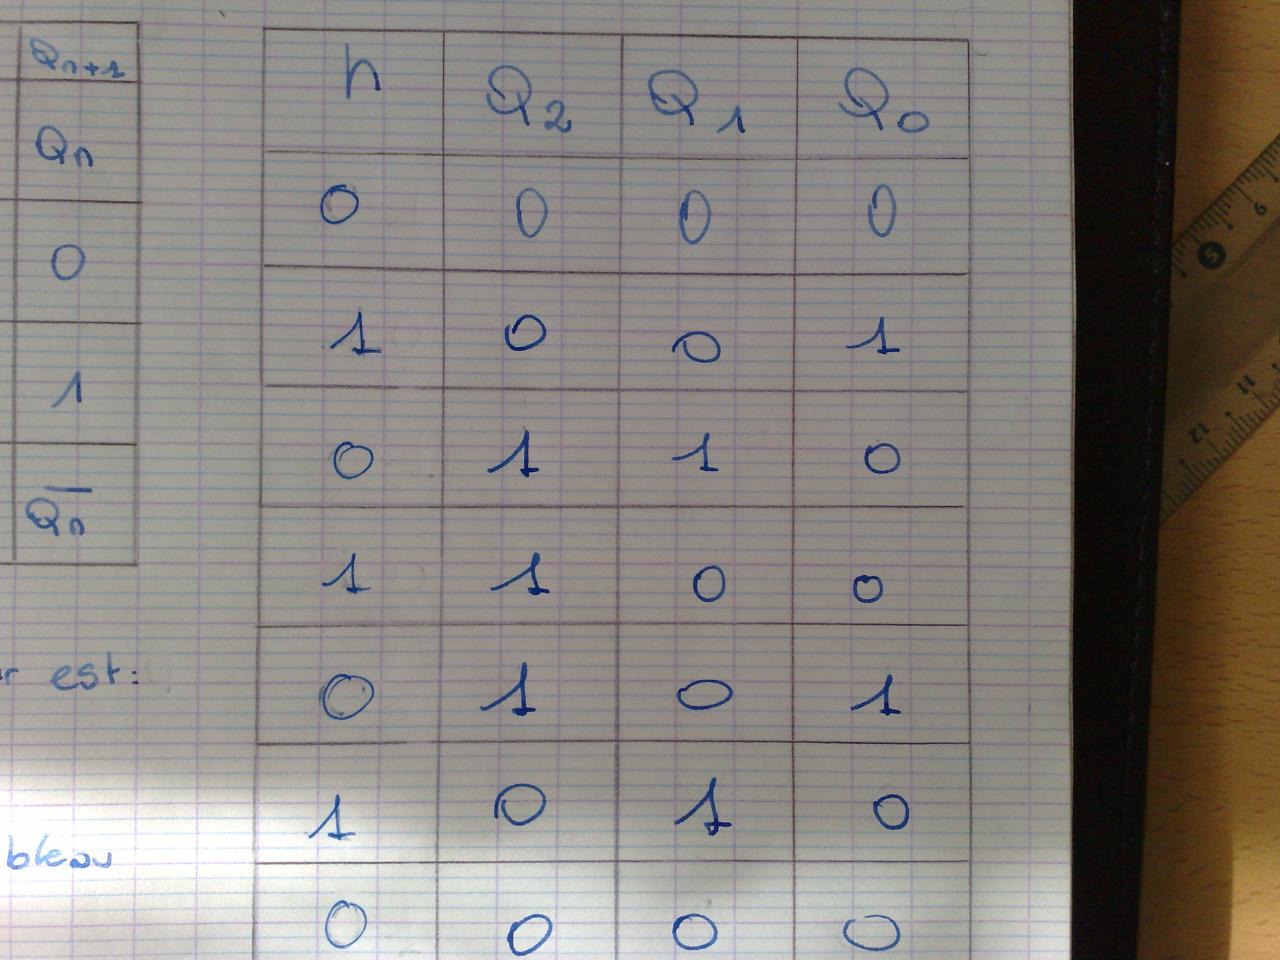 Qn+1
Qn
0
1
Q̅n̅
r est:
bleau
h Q2 Q1 Q0
0 0 0 0
1 0 0 1
0 1 1 0
1 1 0 0
0 1 0 1
1 0 1 0
0 0 0 0
5
9
11
12